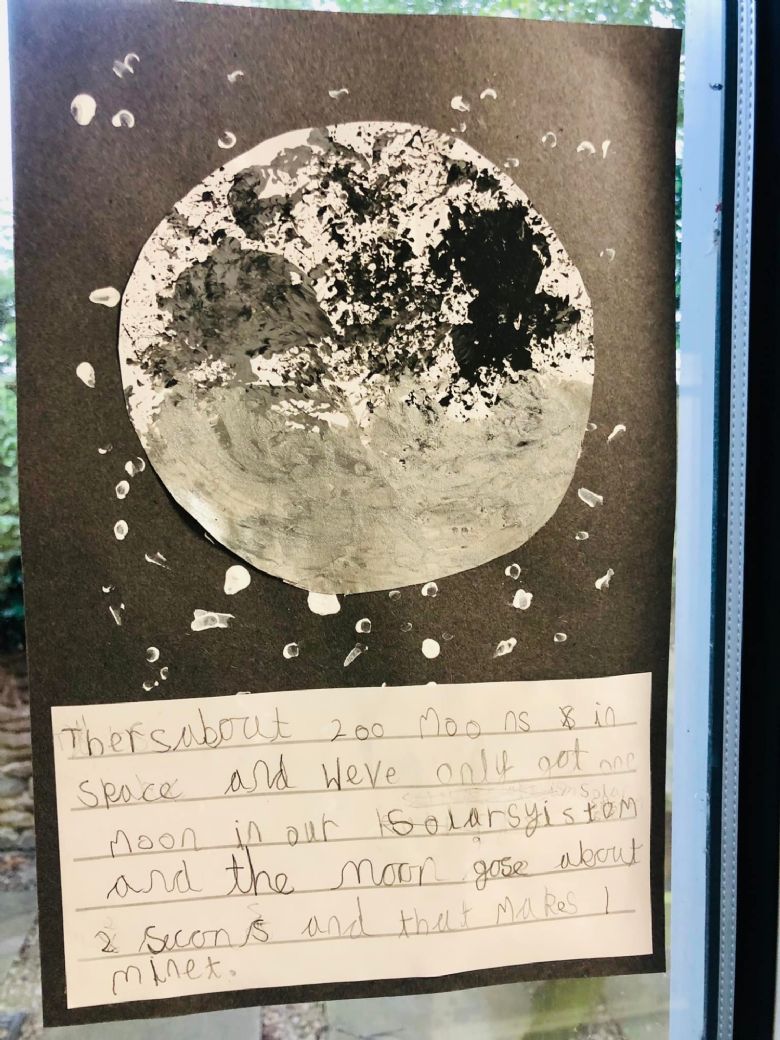 Thersabout 200 Moons in
space and Weve only got one
moon in our Solarsyistem
and the moon gose about
2 secons and that makes 1
minet.